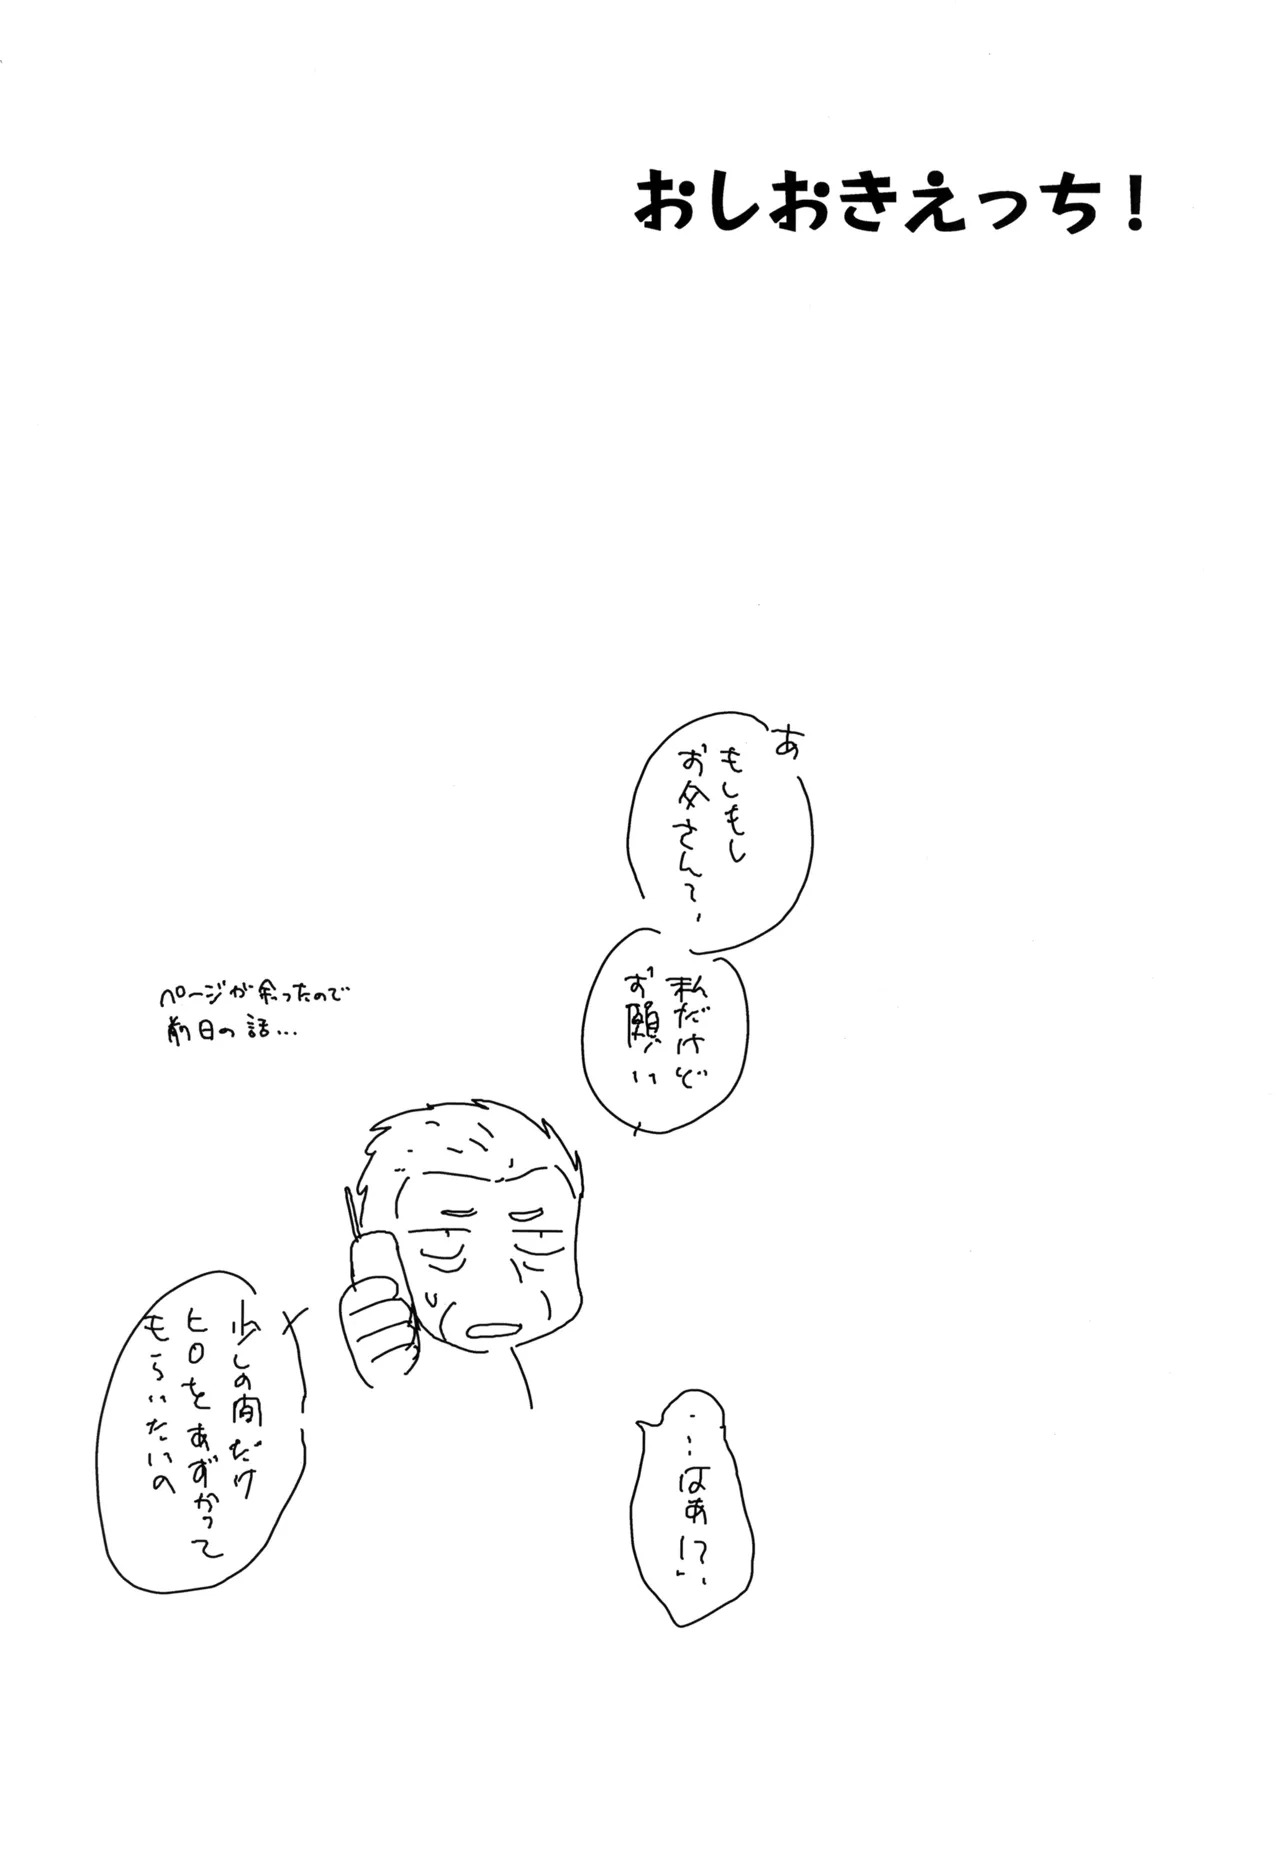 おしおきえっち！
あ
もしもし
お父さんて、
私だけど
お願い
ページが余ったので
前日の話…
少しの間だけ
ヒロをあずかって
もらいたいの
…はあ!?